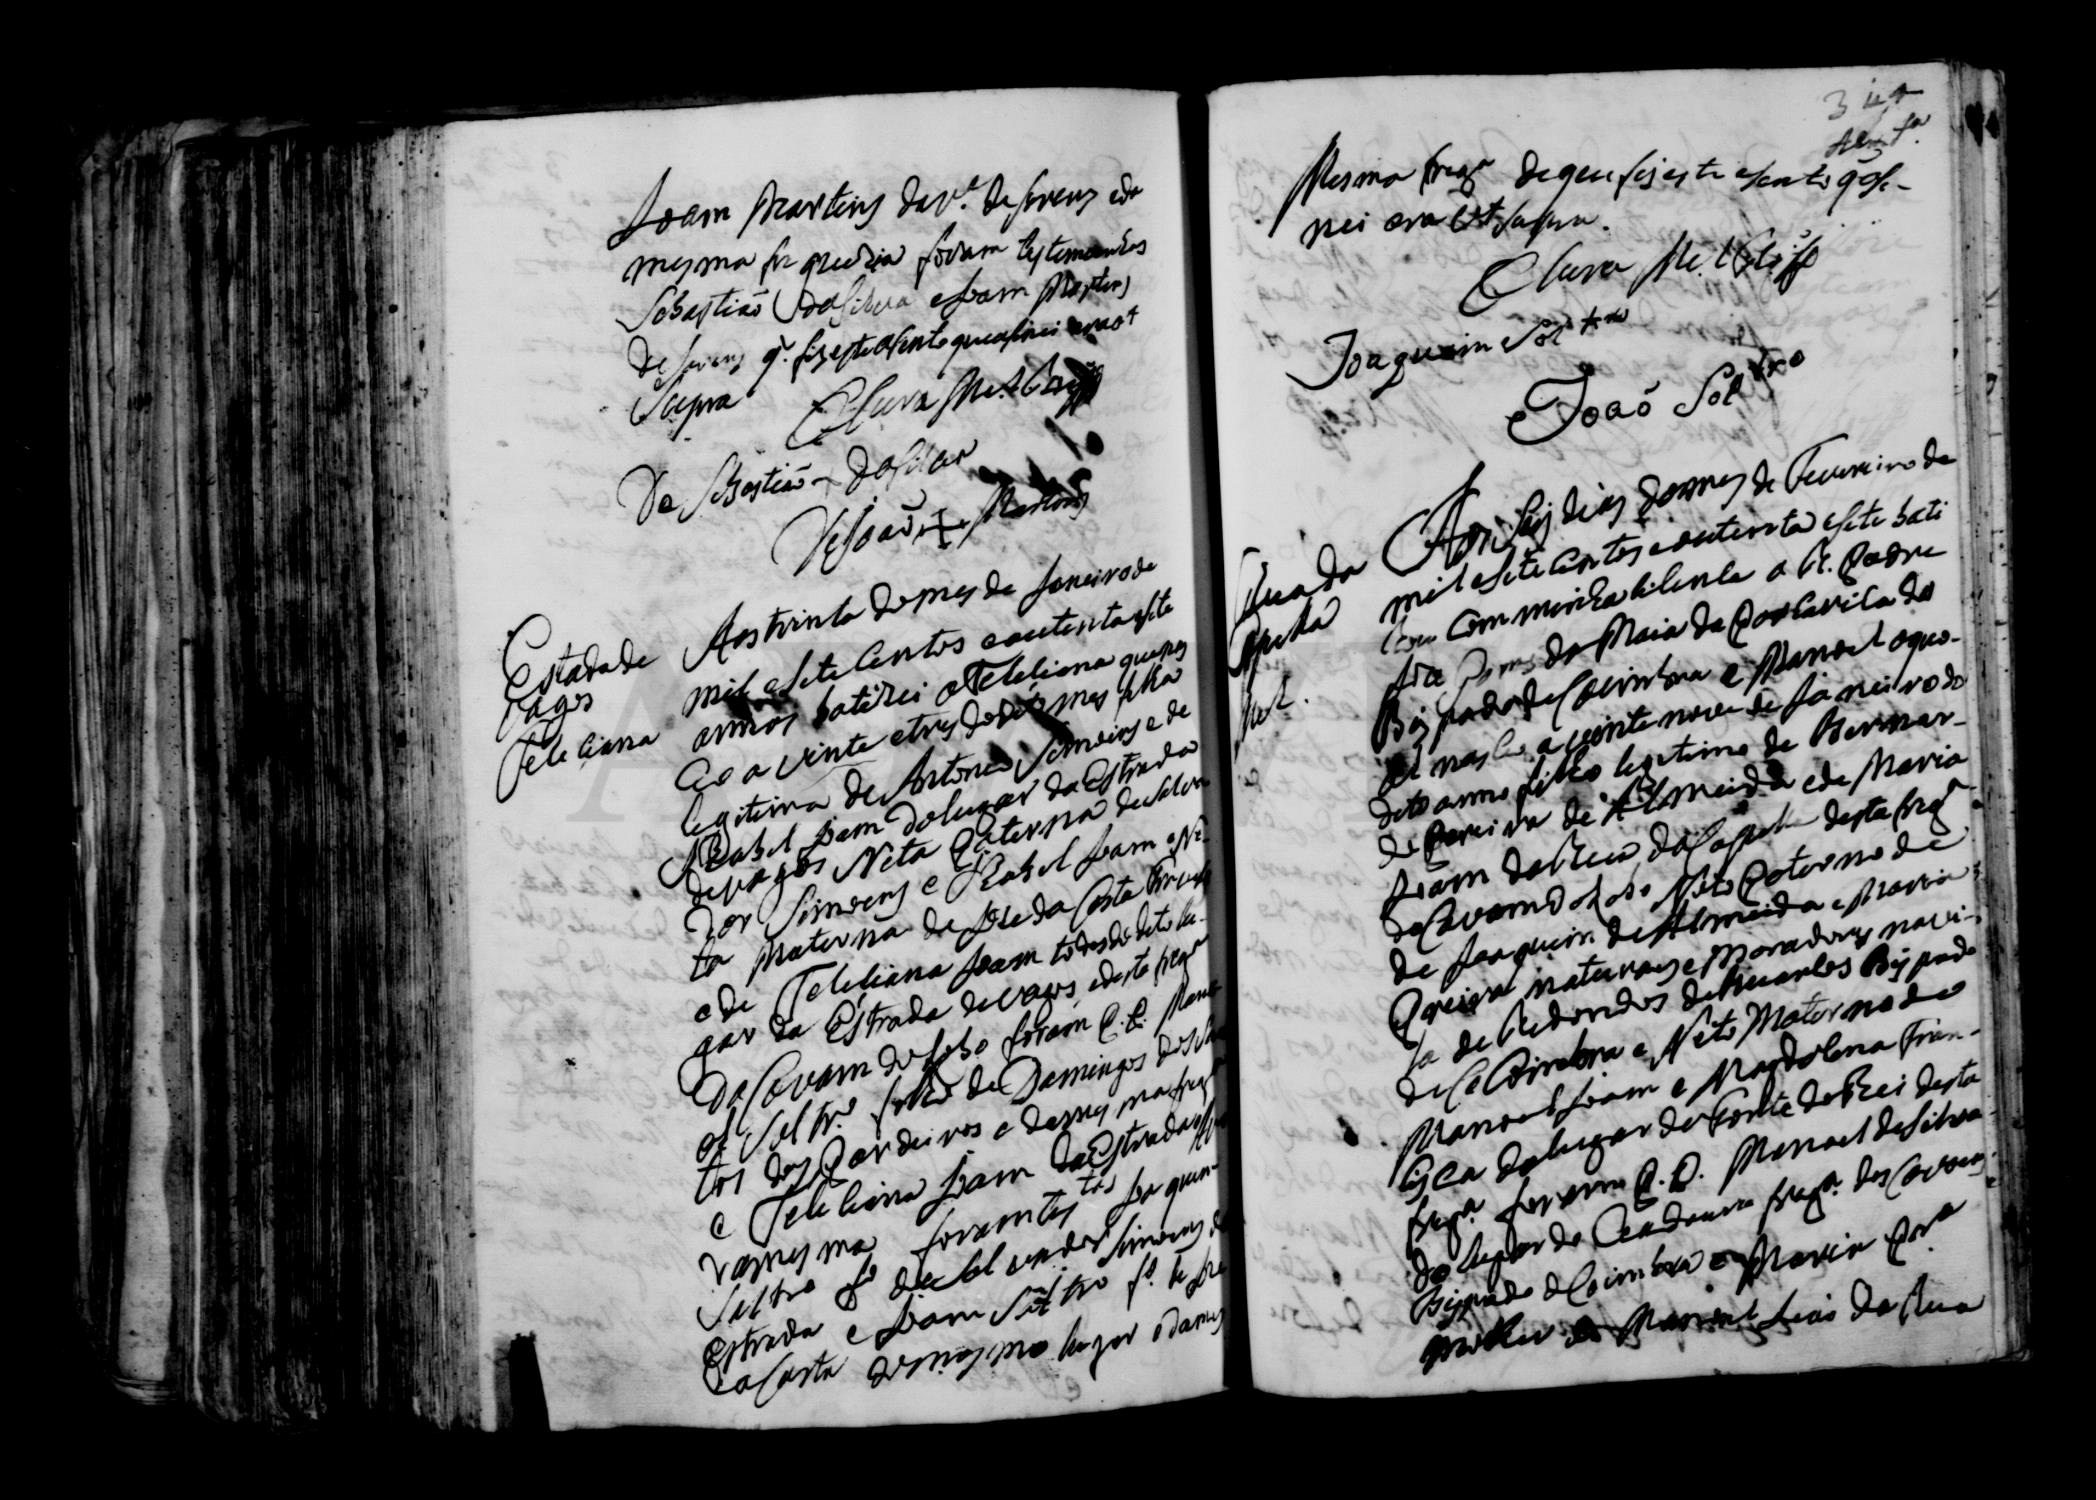 Joam Martins da v.ª de Sorens e da
mesma freguezia foram testemunhas
Sebastiaõ da Silva e Joam Martins
de Sorens q. fiz este asento que asinei era ut
Supra
O Cura M.el
De Sebastiaõ da Silva
De Joaõ + Martins
Estrada de
Vagos
Feleciana
Aos trinta do mes de Janeiro de
mil e sete Centos e outenta e sete
annos batizei a Feleciana que nas
ceo a vinte e tres do dito mes filha
legitima de Antonio Simoins e de
Izabel Joam do lugar da Estrada
de Vagos Neta Paterna de Salva
dor Simoens e Izabel Joam e Ne-
ta Materna de Joze da Costa
e de Feleciana Joam todos do dito lu-
gar da Estrada de Vagos, e desta freg.ª
do Covam do Lobo foram P.P. Mano
el Soltr.º filho de Domingos dos San
tos dos Cardeiros e da mesma freg.ª
e Feleciana Joam da Estrada
va mesma foram tes tas Joaquim
Soltro f.º de Salvador Simoens da
Estrada e Joam Soltro f.º de Joze
da Costa do mesmo lugar e da mes
Mesma freg.ª de que fiz este asento q asi-
nei era ut supra.
O Cura M.el
Joaquim Sol tro
Joaõ Sol tro
Rua da
Capella
M.el
Aos seis dias do mes de Fevereiro de
mil e sete Centos e outenta e sete bati
zou Com minha licenca o R. Padre
Joze Gomes da Maia da Povoa
Bispado de Coimbra a Manoel o quo-
al nasceo a vinte nove de Janeiro do
dito anno filho legitimo de Bernar-
do Pereira de Almeida e de Maria
Joam da Rua da Capella desta freg.ª
do Covam do Lobo Neto Paterno de
de Joaquim de Almeida e Maria
Pereira naturaes e moradores na vi-
la de Redondos de Buarcos Bispado
de Coimbra e Neto Materno de
Manoel Joam e Magdalena Fran-
cisca do lugar da Fonte do Rei desta
freg.ª foram P.P. Manoel da Silva
do lugar da freg.ª dos Covoens
Bispado de Coimbra e Maria Pr.ª
molher de Manoel Joaõ da Rua